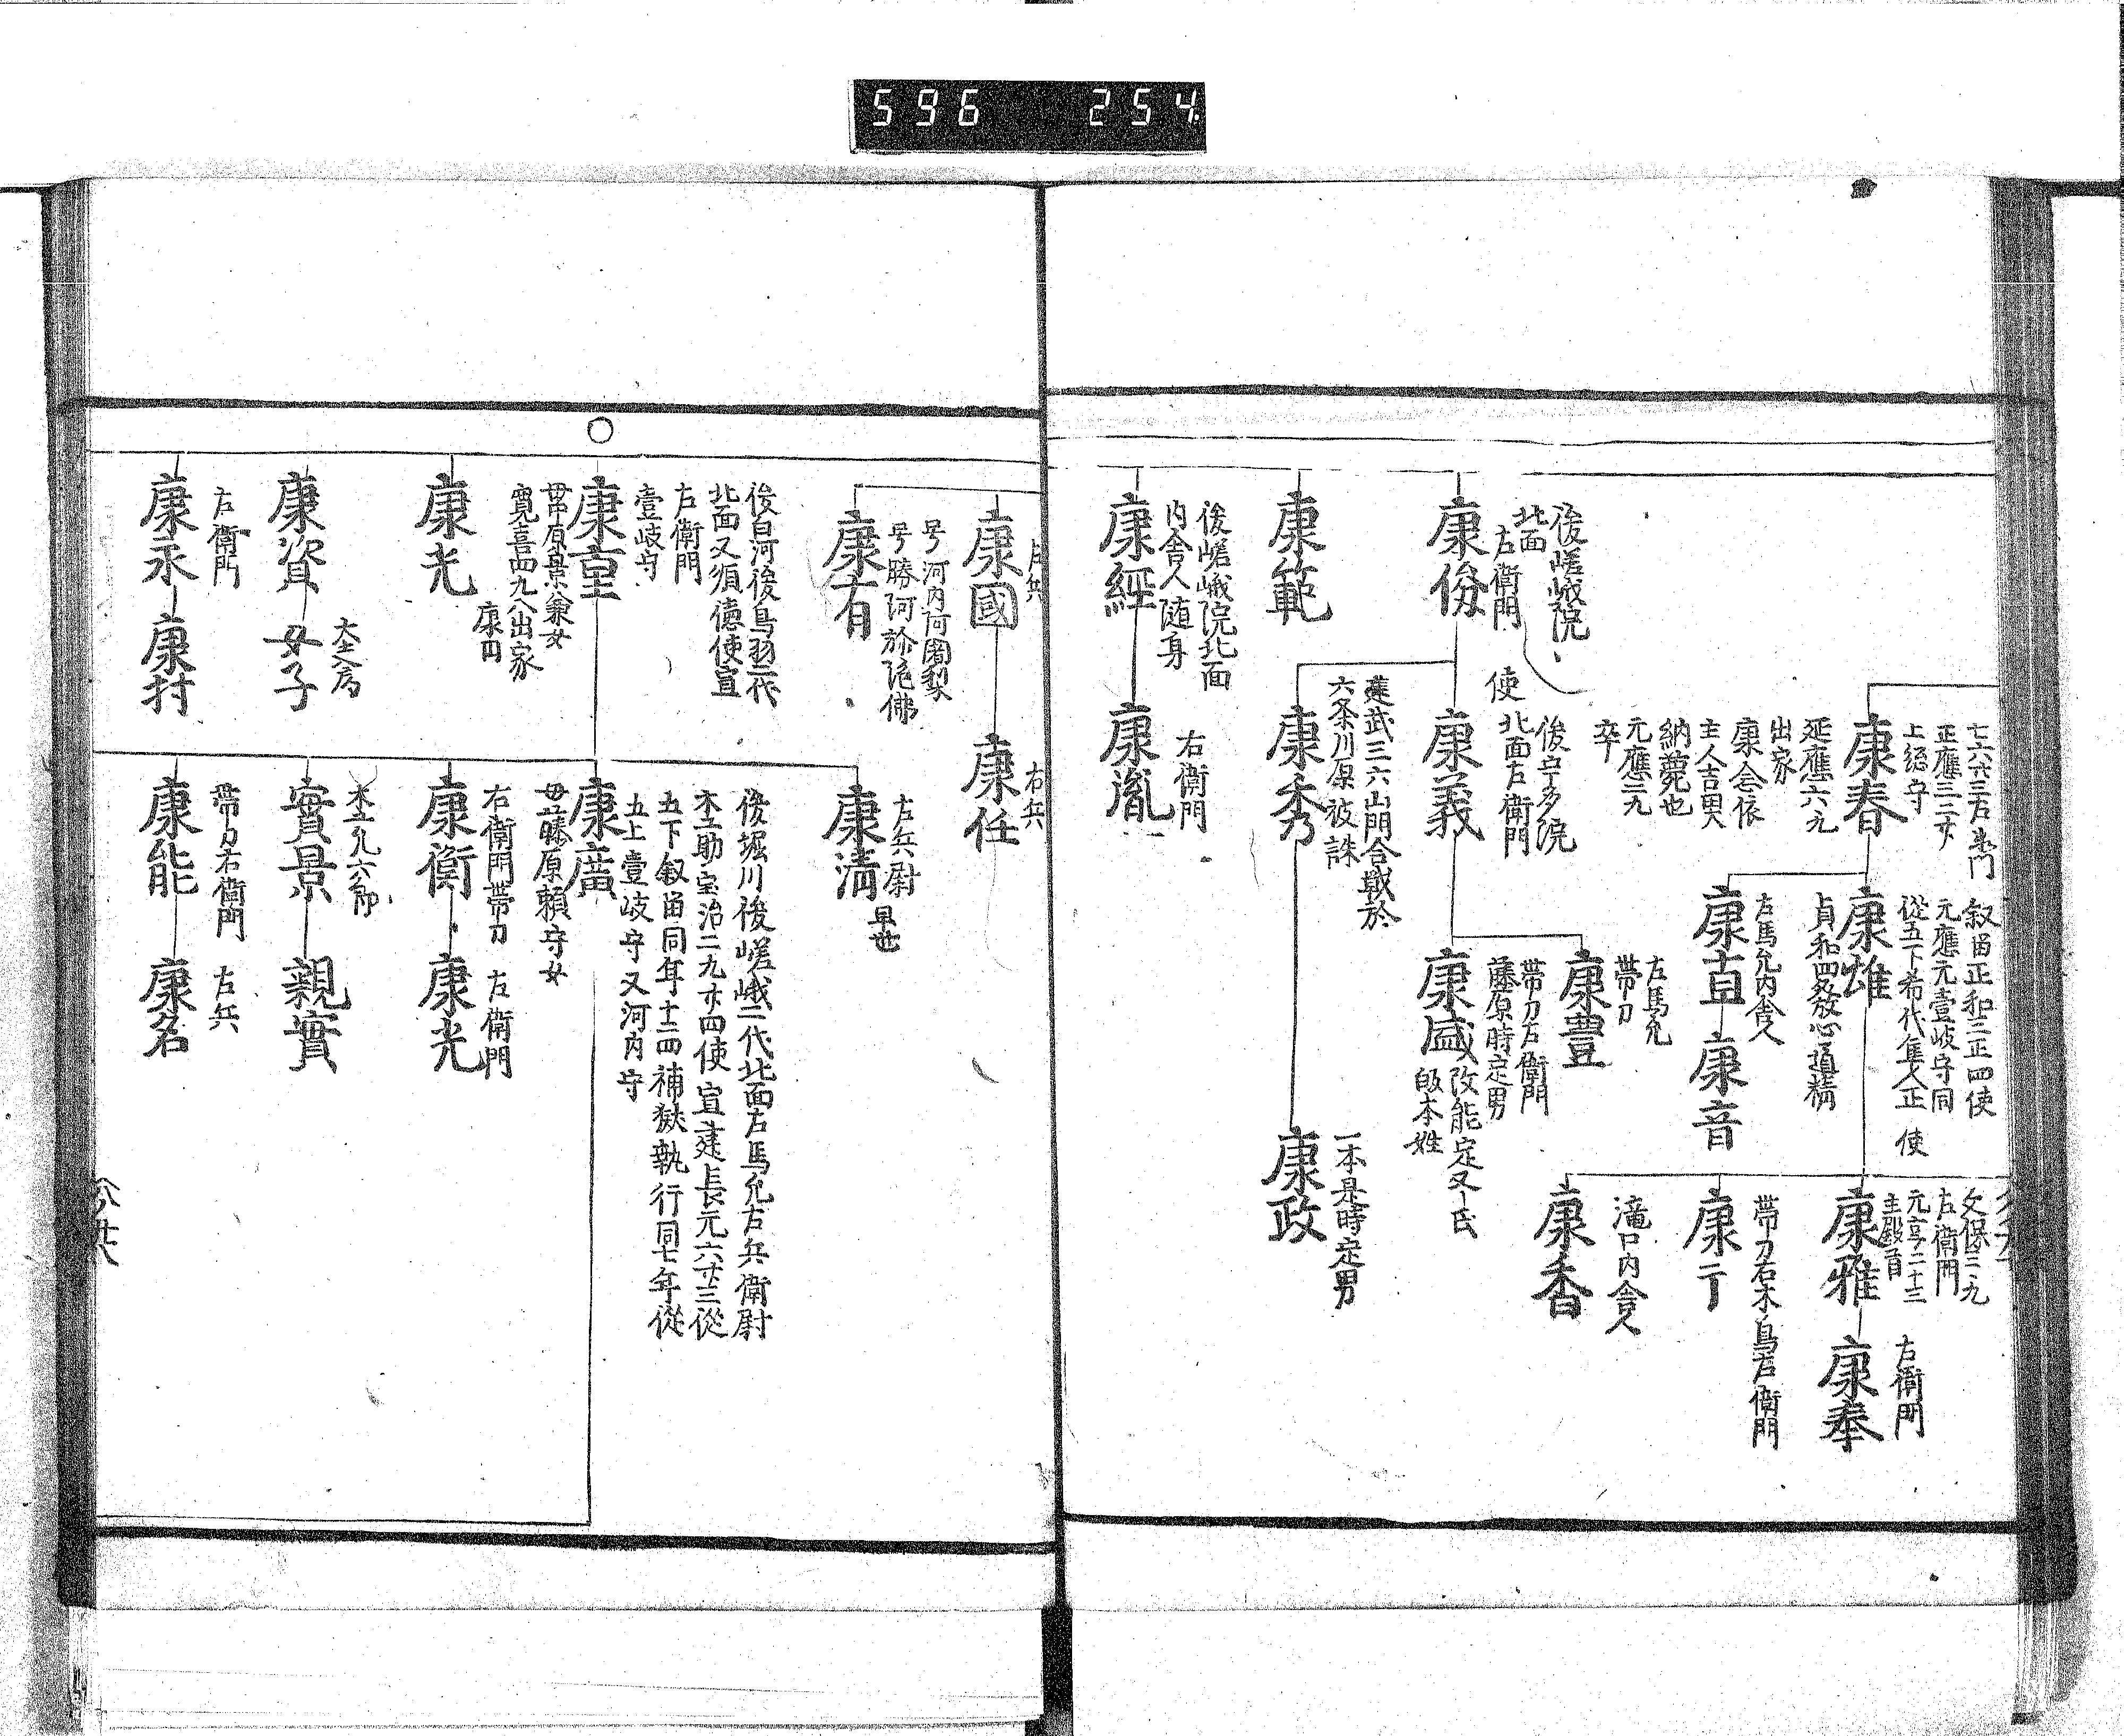 596 254
正應三二廿
上総守
康春
延應六九
出家
康念依
主人吉男
納薨也
元應二九
卒
叙留正和三正四使
元應元壹岐守同
從五下希代隼人正 使
康雄
貞和四

道精
左馬允内舎人
康直
康音
文保三二九
左衛門
元亨二十三
主殿首
康雅
左衛門
康奉
帯刀右木
左衛門
滝口内舎人
康香
後嵯峨院
北面
左衛門
康俊
使
後宇多院
北面左衛門
康義
左馬允
帯刀
康豊
帯刀左衛門
藤原時定男
康盛
改能定又氏
皈本姓
康範
建武三六山門合戦於
六条川原被誅
康秀
一本是時定男
康政
後嵯峨院北面
内舎人随身
康經
右衛門
康胤
左兵
康國
右兵
康任
号河内阿闍梨
康有
左兵尉
早世
康清
後白河後鳥羽二代
北面又順徳使宣
左衛門
壹岐守
康重
寛喜四九八出家
後堀川後嵯峨二代北面左馬允右兵衛尉
木工助宝治二九廿四使宣建長元六廿三從
五下叙留同年十二四補獄執行同七年從
五上壹岐守又河内守
康廣
母藤原頼守女
康光
康円
右衛門帯刀
康衡
左衛門
康光
康資
女子
實景
親實
左衛門
康永
康村
帯刀右衛門
康能
左兵
康名